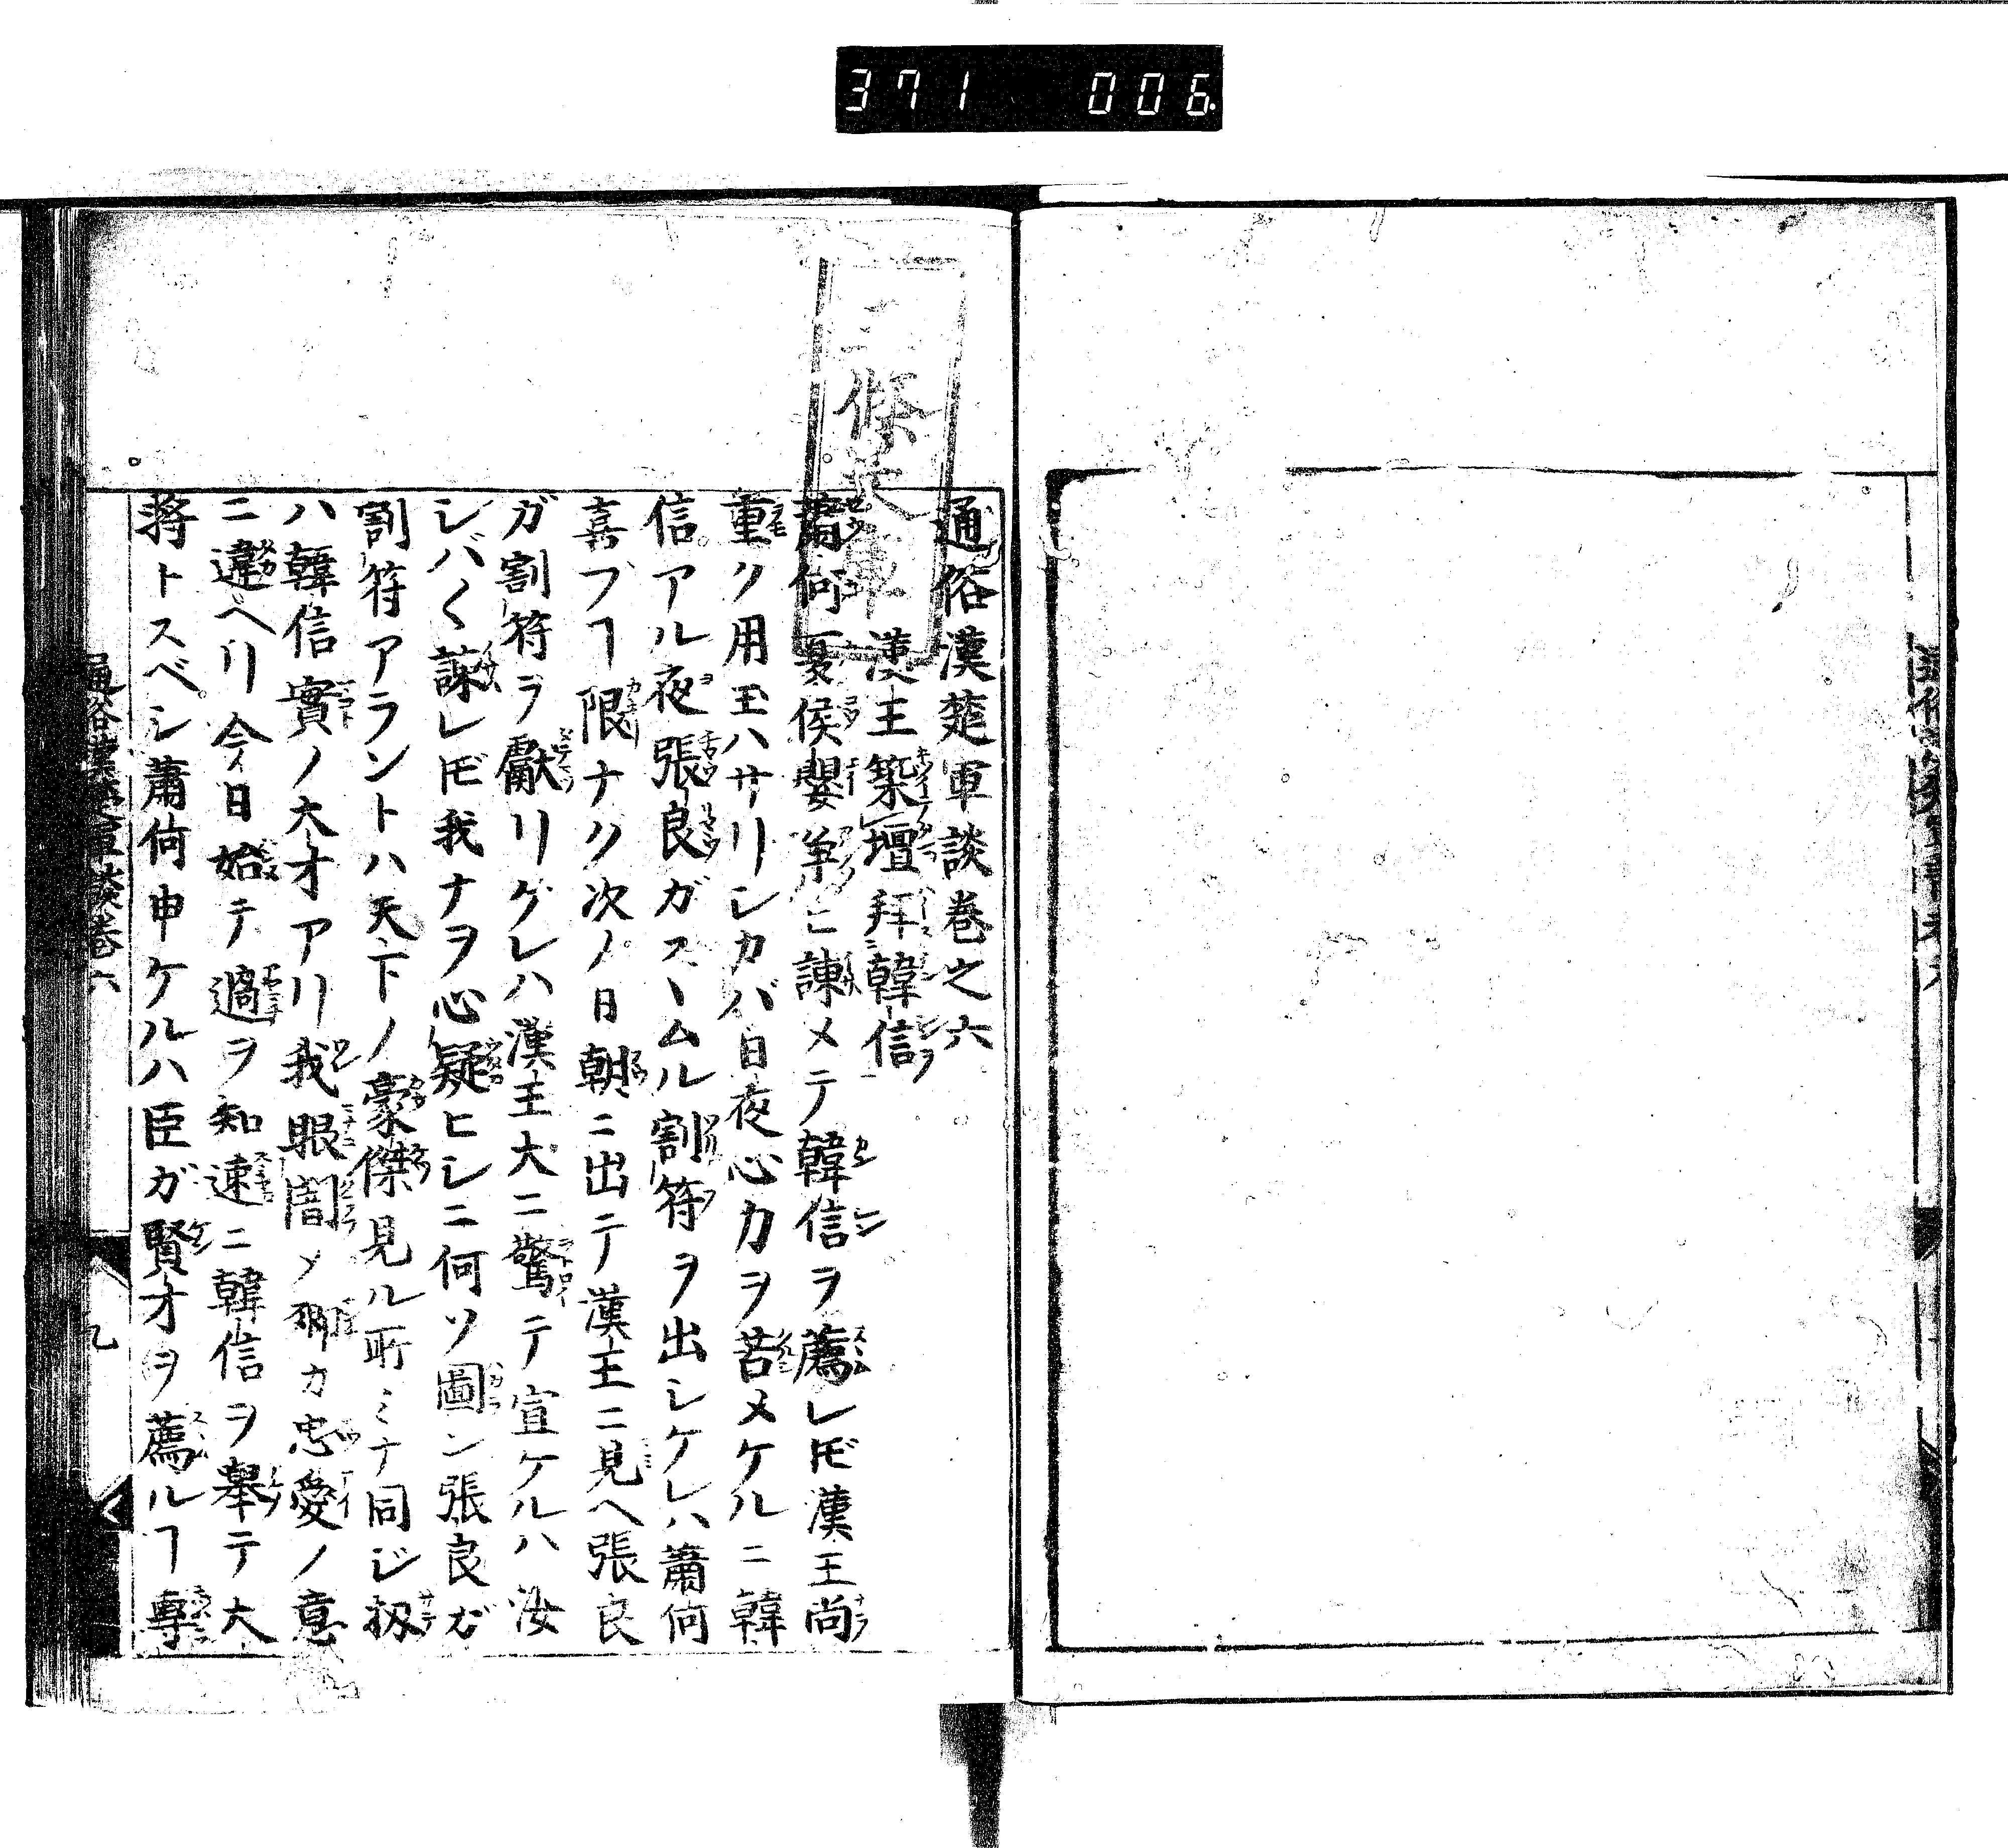 371 006
通俗漢楚軍談巻之六
漢王築壇拜韓信
蕭何夏侯嬰爭ヒ諌メテ韓信ヲ薦レ𪜈漢王尚
重ク用玉ハサリシカバ日夜心力ヲ苦メケルニ韓
信アル夜張良ガスヽムル割符ヲ出シケレハ蕭何
喜フヿ限ナク次ノ日朝ニ出テ漢王ニ見ヘ張良
ガ割符ヲ獻リケレハ漢王大ニ驚テ宣ケルハ汝
シバ〱諌レ𪜈我ナヲ心疑ヒシニ何ソ圖ン張良ガ
割符アラントハ天下ノ豪傑見ル所ミナ同シ扨
ハ韓信實ノ大才アリ我眼闇メ卿カ忠愛ノ意
ニ違ヘリ今日始テ過ヲ知速ニ韓信ヲ舉テ大
將トスベシ蕭何申ケルハ臣ガ賢才ヲ薦ルヿ專
通俗漢楚軍談巻六